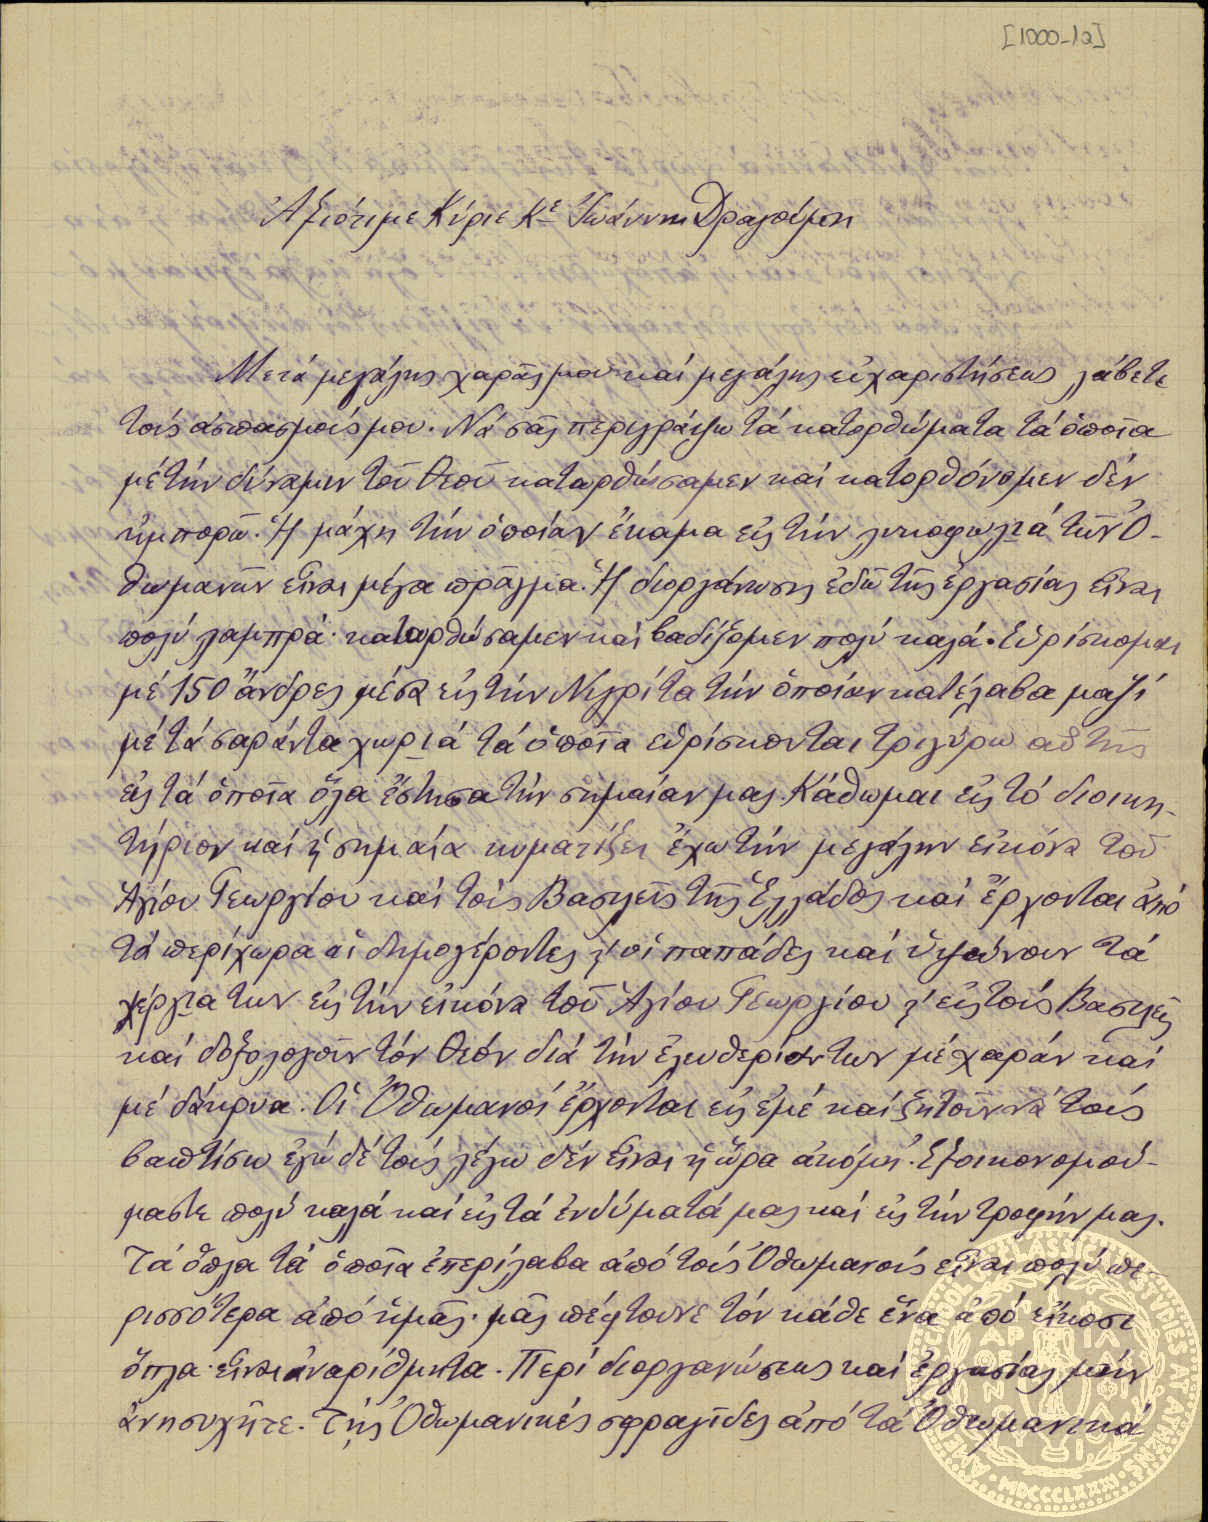 [1000-12]
Ἀξιότιμε Κύριε Κε Ἰωάννη Δραγούμη
Μετά μεγάλης χαρᾶς μου καί μεγάλης εὐχαριστήσεως λάβετε
τούς ἀσπασμούς μου. Νά σᾶς περιγράψω τά κατορθώματα τά ὁποῖα
μέ τήν δύναμιν τοῦ Θεοῦ κατωρθώσαμεν καί κατορθόνομεν δέν
ἠμπορῶ. Ἡ μάχη τήν ὁποίαν ἔκαμα εἰς τήν λυκοφωλιά τῶν Ὀ-
θωμανῶν εἶναι μέγα πρᾶγμα. Ἡ διοργάνωσις ἐδῶ τῆς ἐργασίας εἶναι
πολύ λαμπρά· κατωρθώσαμεν καί βαδίζομεν πολύ καλά. Εὑρίσκομαι
μέ 150 ἄνδρες μέσα εἰς τήν Νιγρίτα τήν ὁποίαν κατέλαβα μαζί
μέ τά σαράντα χωριά τά ὁποῖα εὑρίσκονται τριγύρω αὐτῆς
εἰς τά ὁποῖα ὅλα ἔστησα τήν σημαίαν μας. Κάθωμαι εἰς τό διοικη-
τήριον καί ἡ σημαία κυματίζει ἔχω τήν μεγάλην εἰκόνα τοῦ
Ἁγίου Γεωργίου καί τούς Βασιλεῖς τῆς Ἑλλάδος καί ἔρχονται ἀπό
τά περίχωρα οἱ δημογέροντες κ' οἱ παπάδες καί ὑψώνουν τά
χέργια των εἰς τήν εἰκόνα τοῦ Ἁγίου Γεωργίου κ' εἰς τούς Βασιλεῖς
καί δοξολογοῦν τόν Θεόν διά τήν ἐλευθερίαν των μέ χαράν καί
μέ δάκρυα. Οἱ Ὀθωμανοί ἔρχονται εἰς ἐμέ καί ζητοῦν νά τούς
βαπτίσω ἐγώ δέ τούς λέγω δέν εἶναι ἡ ὥρα ἀκόμη. Ἐξοικονομού-
μαστε πολύ καλά καί εἰς τά ἐνδύματά μας καί εἰς τήν τροφήν μας.
Τά ὅπλα τά ὁποῖα ἐπερίλαβα ἀπό τούς Ὀθωμανούς εἶναι πολύ πε
ρισσότερα ἀπό ἡμᾶς· μᾶς πέφτουνε τόν κάθε ἕνα ἀπό εἴκοσι
ὅπλα· εἶναι ἀναρίθμητα. Περί διοργανώσεως καί ἐργασίας μήν
ἀνησυχῆτε. Τῄς Ὀθωμανικές σφραγῖδες ἀπό τά Ὀθωμανικά